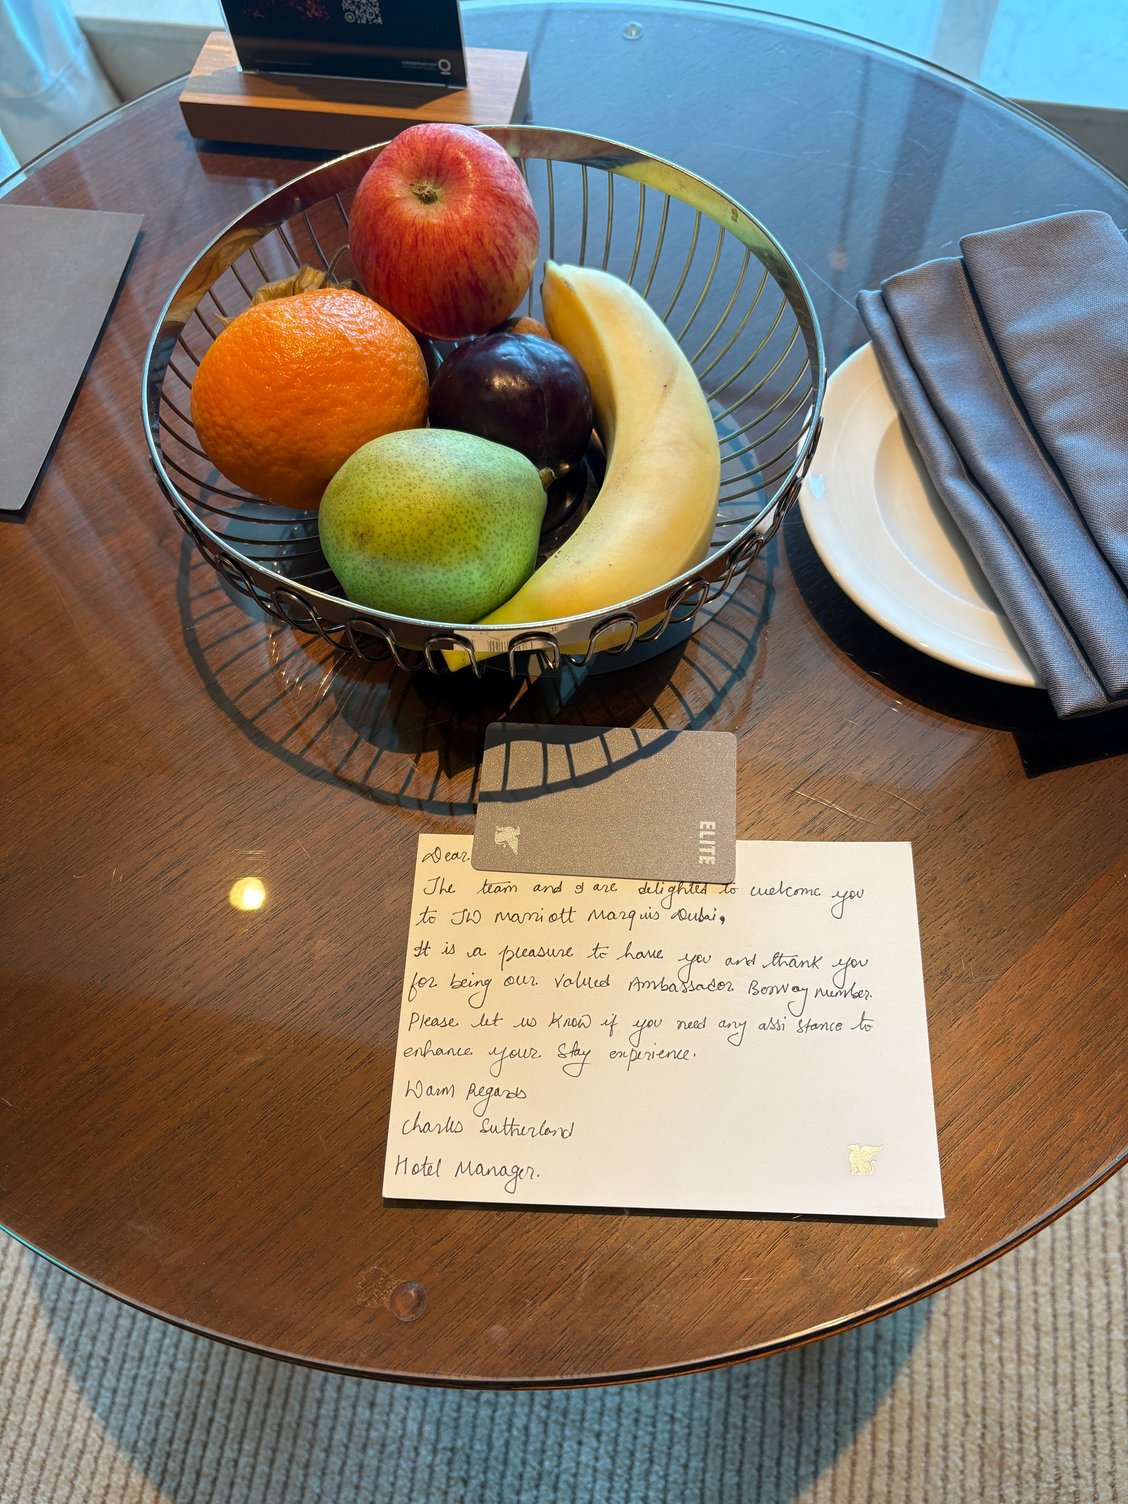 ELITE
Dear
The team and I are delighted to welcome you
to JW Marriott Marquis Dubai,
It is a pleasure to have you and thank you
for being our valued Ambassador Bonvoy member.
Please let us know if you need any assistance to
enhance your stay experience.
Warm Regards
Charles Sutherland
Hotel Manager.